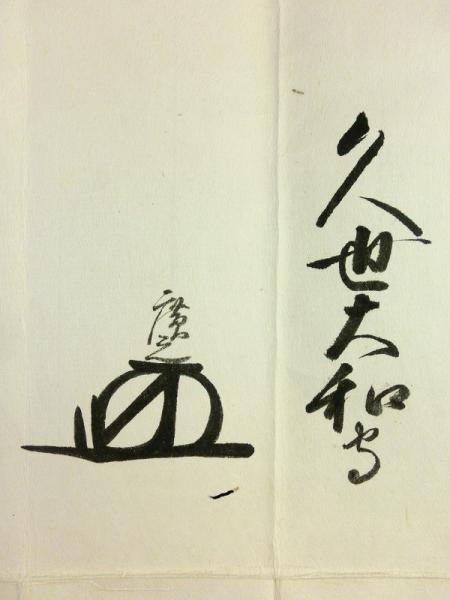 久世大和守
廣之